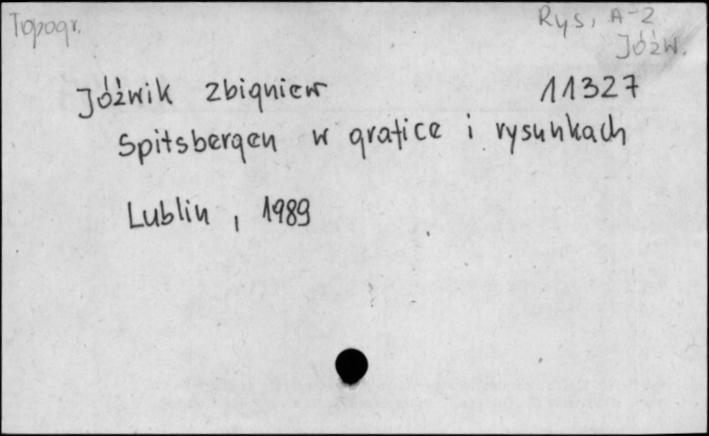 Topogr.
Rys, A-2
Jóźw.
Jóźwik Zbigniew 11327
Spitsbergen w grafice i rysunkach
Lublin, 1989